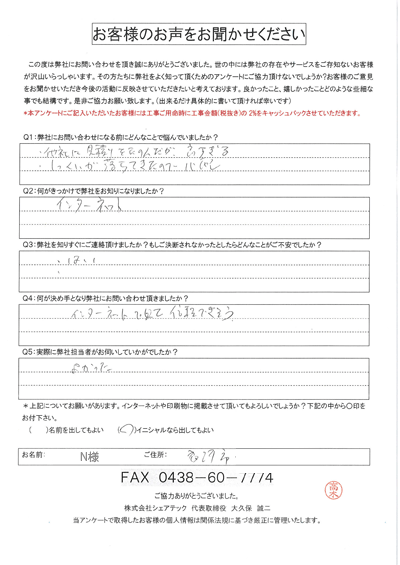 お客様のお声をお聞かせください
この度は弊社にお問い合わせを頂き誠にありがとうございます。世の中には弊社の存在やサービスをご存知ないお客様
が沢山いらっしゃいます。その方たちに弊社をよく知って頂くためのアンケートにご協力頂けないでしょうか?お客様のご意見
をお聞かせいただき今後の活動に反映させていただきたいと考えております。良かったこと、嬉しかったことどのような些細な
事でも結構です。是非ご協力お願い致します。(出来るだけ具体的に書いて頂ければ幸いです)
*本アンケートにご記入いただいたお客様には工事ご用命時に工事金額(税抜き)の 2%をキャッシュバックさせていただきます。
Q1:弊社にお問い合わせになる前にどんなことで悩んでいましたか?
・他社に見積りをたのんだが
・しっくいが落ちてきたので
Q2:何がきっかけで弊社をお知りになりましたか?
インターネット
Q3:弊社を知りすぐにご連絡頂けましたか?もしご決断されなかったとしたらどんなことがご不安でしたか?
・はい
Q4:何が決め手となり弊社にお問い合わせ頂きましたか?
インターネットで見て信頼できそう
Q5:実際に弊社担当者がお伺いしていかがでしたか?
よかった
*上記についてお願いがあります。インターネットや印刷物に掲載させて頂いてもよろしいでしょうか?下記の中から〇印を
お付下さい。
( )名前を出してもよい (〇)イニシャルなら出してもよい
お名前: N様 ご住所:
FAX 0438-60-7774
ご協力ありがとうございました。
株式会社シェアテック 代表取締役 大久保 誠二
当アンケートで取得したお客様の個人情報は関係法規に基づき厳正に管理いたします。